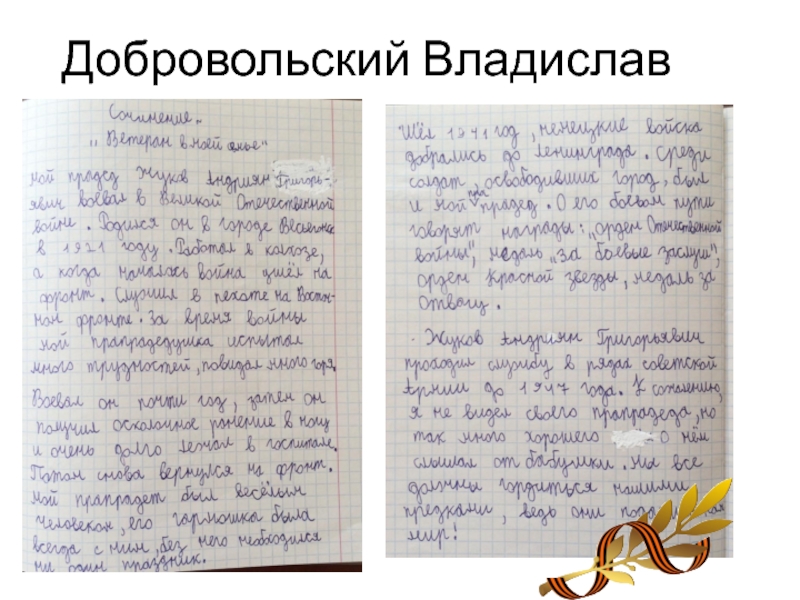 Добровольский Владислав
Сочинение.
„Ветеран в моей семье"
Мой прадед Жуков Андриян Григорь-
явич воевал в Великой Отечественной
войне. Родился он в городе
в 1921 году. Работал в колхозе,
а когда началась война ушёл на
фронт. Служил в пехоте на Восточ-
ном фронте. За время войны
мой прапрадедушка испытал
много трудностей, повидал много горя.
Воевал он почти год, затем он
получил осколочное ранение в ногу
и очень долго лежал в госпитале.
Потом снова вернулся на фронт.
Мой прапрадет был весёлым
человеком, его гармошка была
всегда с ним, без него необходился
ни один праздник.
Шёл 1941 год, немецкие войска
добрались до Ленинграда. Среди
солдат, освободивших город, был
и мой прапрадед. О его боевом пути
говорят награды: „орден Отечественной
войны", медаль „За боевые заслуги",
орден Красной звезды, медаль за
отвагу.
Жуков Андриян Григорьявич
проходил службу в рядах советской
Армии до 1947 года. К сожалению,
я не видел своего прапрадеда, но
так много хорошего о нём
слышал от бабушки. Мы все
должны гордиться нашими
предками, ведь они
мир!